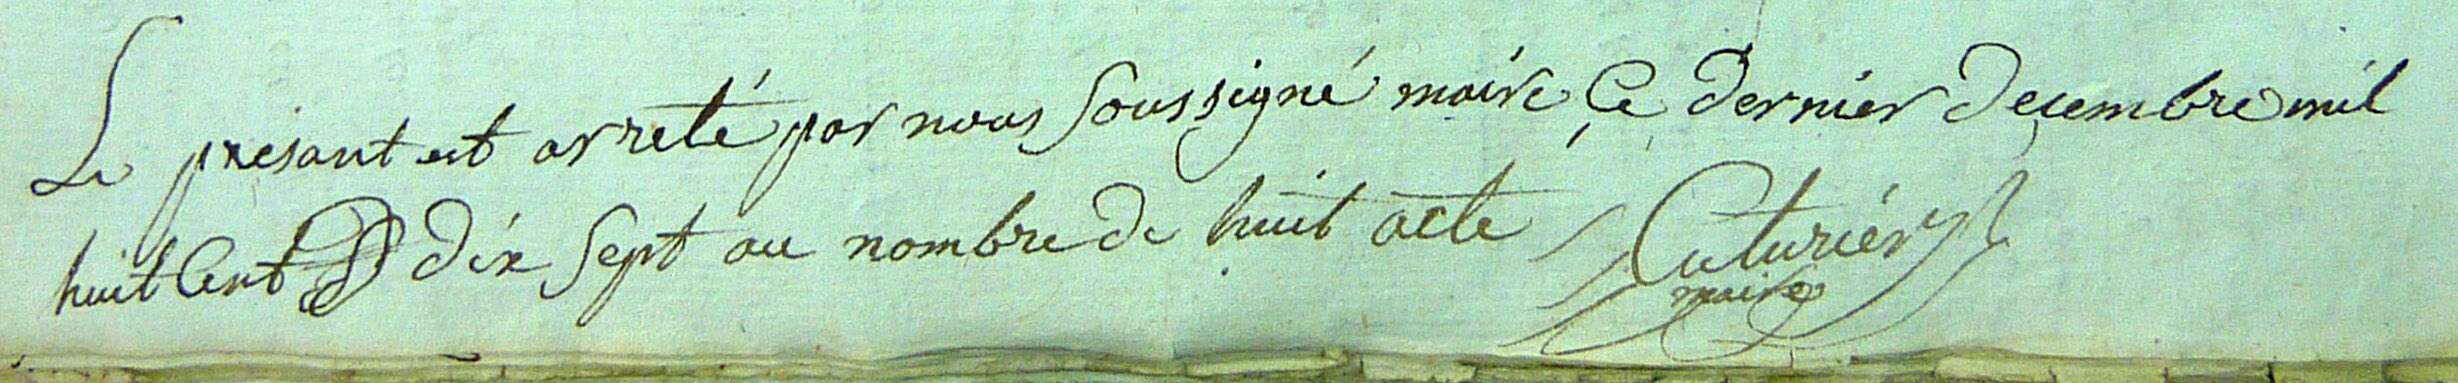 Le présant est arreté par nous soussigné maire Ce dernier decembre mil
huit Cent dix sept au nombre de huit acte Cuturiér
maire